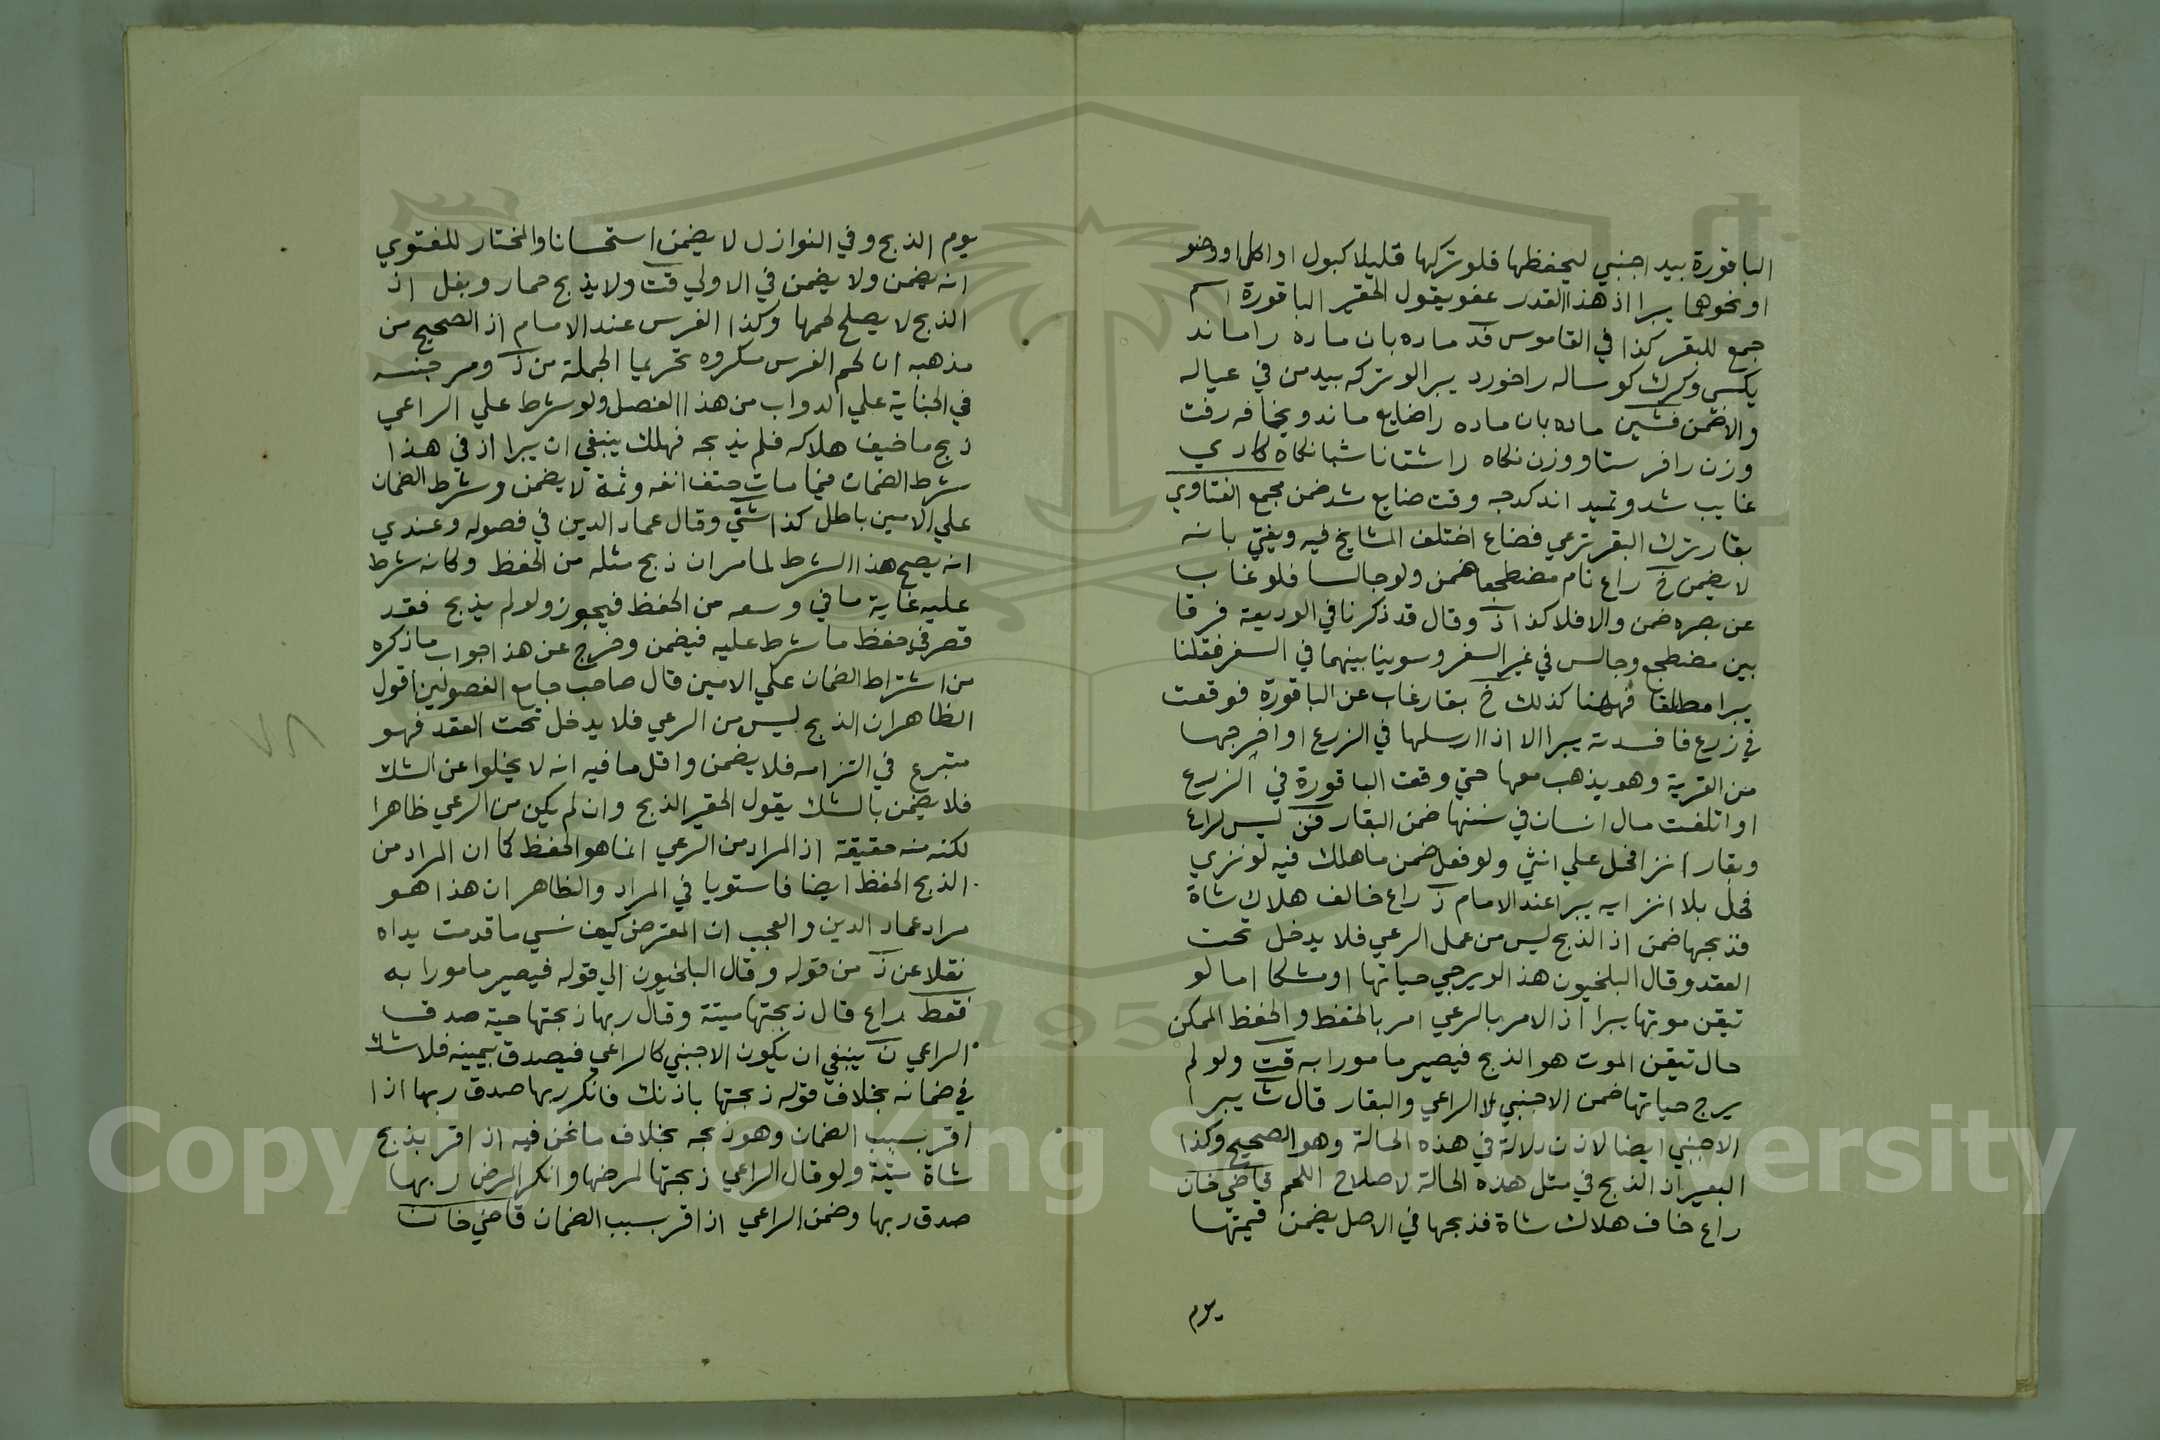 الباقورة بيد اجنبي ليحفظها فلو تركها قليلا كبول او اكل او وضو
او نحوهما يبرا اذ هذا القدر عفو يقول الحقير الباقورة اسم
جمع للبقر كذا في القاموس قد ماده بان ماده را ماند
يكسى وكرك كوساله را خورد يبرا لو تركه بيد من في عياله
والا ضمن فشين ماده بان ماده را ضايع ماند وبخانه رفت
وزن را فرستاد وزن نكاه راشتا ناشبانكاه كادي
غايب شد وتميد اند كدجه وقت ضايع شد ضمن مجمع الفتاوي
بقار ترك البقر ترعي فضاع اختلف المشايخ فيه ويفتي بانه
لا يضمن خ راع نام مضطجعا ضمن ولو جالسا فلو غاب
عن بصره ضمن والا فلا كذا ذ وقال قد ذكرنا في الوديعة فرقا
بين مضطجع وجالس في غير السفر وسوينا بينهما في السفر فقلنا
يبرا مطلقا فههنا كذلك خ بقار غاب عن الباقورة فوقعت
في زرع فافسدته يبرا الا اذا ارسلها في الزرع او اخرجها
من القرية وهو يذهب معها حتي وقعت الباقورة في الزرع
او اتلفت مال انسان في سننها ضمن البقار فن ليس لراع
وبقار انزا فحل علي انثي ولو فعل ضمن ما هلك فيه لو نزي
فحل بلا انزايه يبرا عند الامام ذ راع خالف هلاك شاة
فذبجها ضمن اذ الذبح ليس من عمل الرعي فلا يدخل تحت
العقد وقال البلخيون هذا لو يرجي حياتها او مشكا اما لو
تيقن موتها يبرا اذ الامر بالرعي امر بالحفظ والحفظ الممكن
حال تيقن الموت هو الذبح فيصير مامورا به قت ولو لم
يرج حياتها ضمن الاجنبي لا الراعي والبقار قال ث يبرا
الاجنبي ايضا لاذن دلالة في هذه الحالة وهو الصحيح وكذا
البعير اذ الذبح في مثل هذه الحالة لاصلاح اللحم قاضي خان
راع خاف هلاك شاة فذبجها في الاصل يضمن قيمتها
يوم
يوم الذبح وفي النوازل لا يضمن استحسانا والمختار للفتوي
انه يضمن ولا يضمن في الاولي قت ولا يذبح حمار وبغل اذ
الذبح لا يصلح لحمها وكذا الفرس عند الامام اذ الصحيح من
مذهبه ان لحم الفرس مكروه تحريما الجملة من ذ ومر جنسه
في الجناية علي الدواب من هذا الفصل ولو شرط علي الراعي
ذبح ما خيف هلاكه فلم يذبحه فهلك ينبغي ان يبرا اذ في هذا
شرط الضمان فيما مات حتف انفه وثمة لا يضمن وشرط الضمان
علي الامين باطل كذا شي وقال عماد الدين في فصوله وعندي
انه يصح هذا الشرط لما مر ان ذبح مثله من الحفظ وكانه شرط
عليه غاية ما في وسعه من الحفظ فيجوز ولو لم يذبح فقد
قصر في حفظ ما شرط عليه فيضمن وخرج عن هذا جواب ما ذكره
من اشتراط الضمان علي الامين قال صاحب جامع الفصولين اقول
الظاهر ان الذبح ليس من الرعي فلا يدخل تحت العقد فهو
متبرع في التزامه فلا يضمن واقل ما فيه انه لا يخلوا عن الشك
فلا يضمن بالشك يقول الحقير الذبح وان لم يكن من الرعي ظاهرا
لكنه منه حقيقة اذ المراد من الرعي انما هو الحفظ كما ان المراد من
الذبح الحفظ ايضا فاستويا في المراد والظاهر ان هذا هو
مراد عماد الدين والعجب ان المعترض كيف نسي ما قدمت يداه
نقلا عن ذ من قوله وقال البلخيون الي قوله فيصير مامورا به
فقط راع قال ذبحتها ميتة وقال ربها ذبحتها حية صدق
الراعي ن ينبغي ان يكون الاجنبي كالراعي فيصدق بيمينه فلا شك
في ضمانه بخلاف قوله ذبحتها باذنك فانكر ربها صدق ربها اذا
اقر بسبب الضمان وهو ذبحه بخلاف ما نحن فيه اذ اقر بذبح
شاة ميتة ولو قال الراعي ذبحتها لمرضها وانكر المرض ربها
صدق ربها وضمن الراعي اذ اقر بسبب الضمان قاضي خان
Copyright © King Saud University
1957